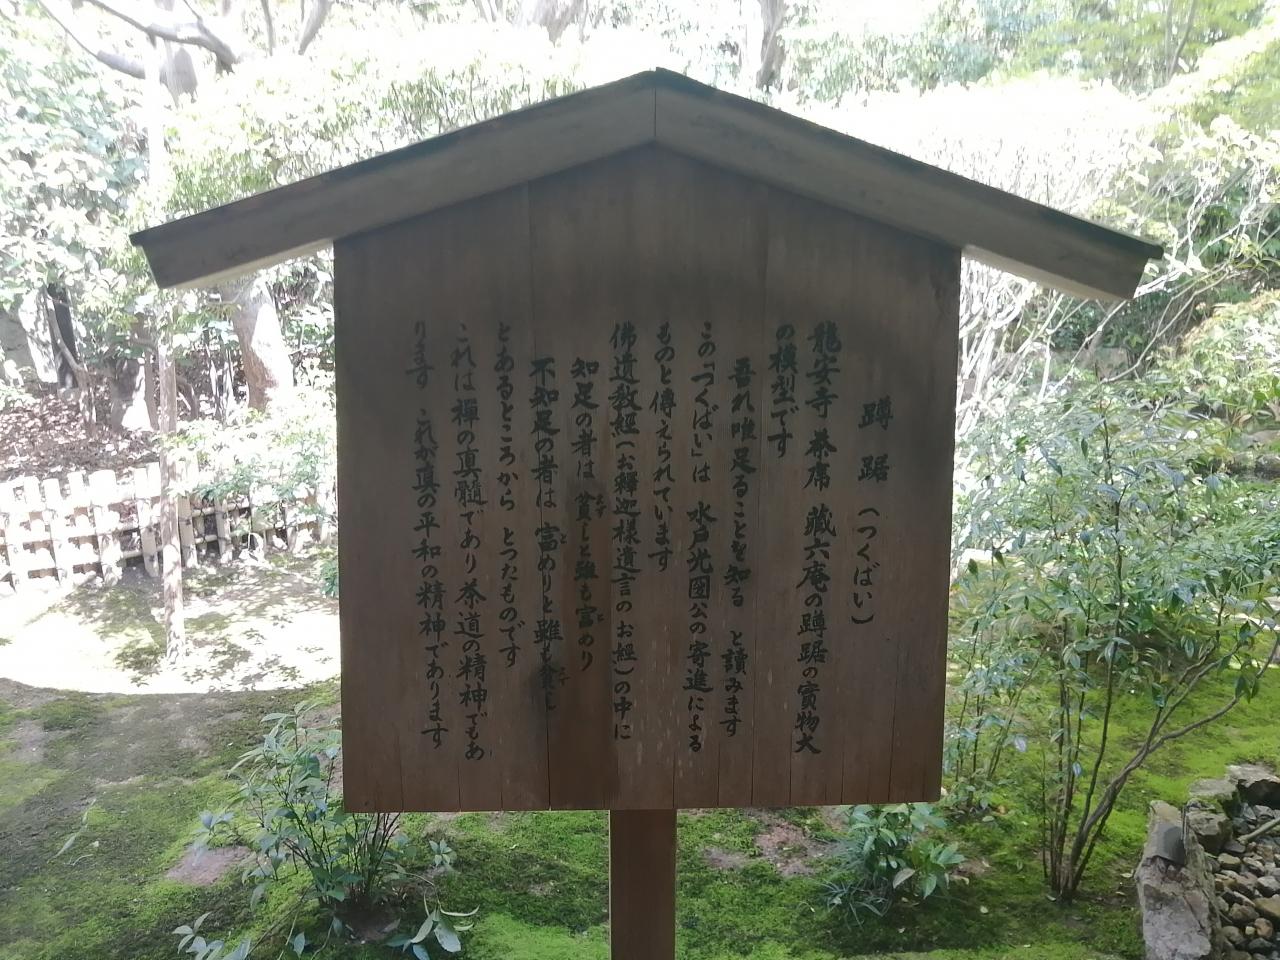 蹲踞（つくばい）
龍安寺 茶席 藏六庵の蹲踞の實物大
の模型です
吾れ唯足ることを知る と讀みます
この「つくばい」は 水戸光圀公の寄進による
ものと傳えられています
佛遺教經（お釋迦様遺言のお經）の中に
知足の者は 貧しと雖も富めり
不知足の者は 富めりと雖も貧し
とあるところから とつたものです
これは禪の真髓であり 茶道の精神でもあ
ります これが真の平和の精神であります